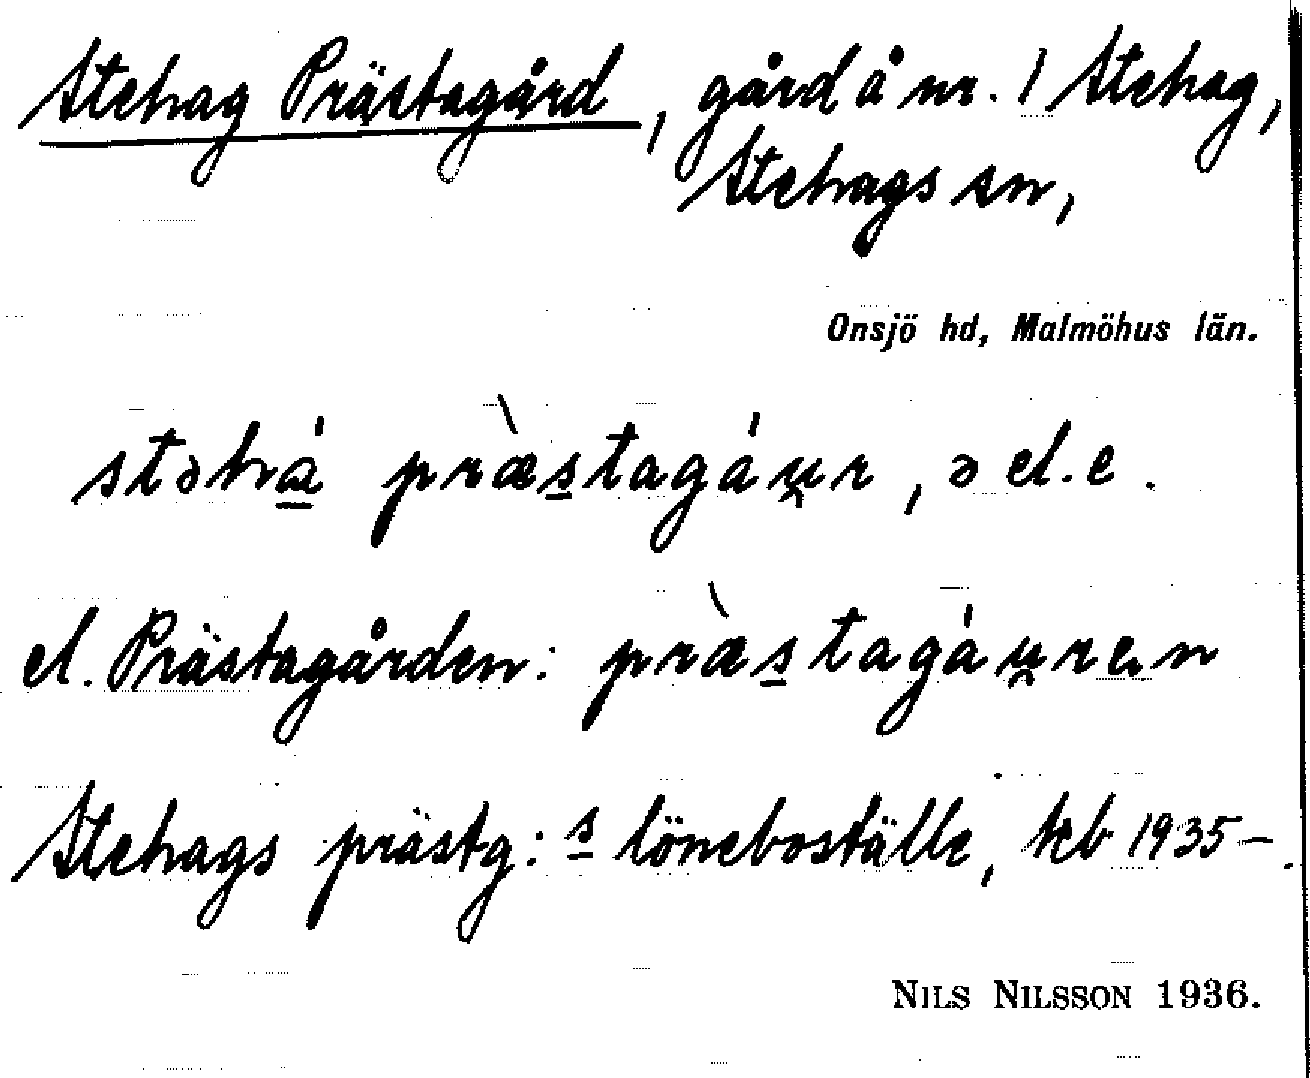 Stehag Prästagård, gård å nr. 1 Stehag,
Stehags sn,
Onsjö hd, Malmöhus län.
stəhá præ̀stagáu̯r, ə el. e.
el. Prästagården: præ̀stagáu̯ren
Stehags prästg:s löneboställe, teb 1935–.
NILS NILSSON 1936.